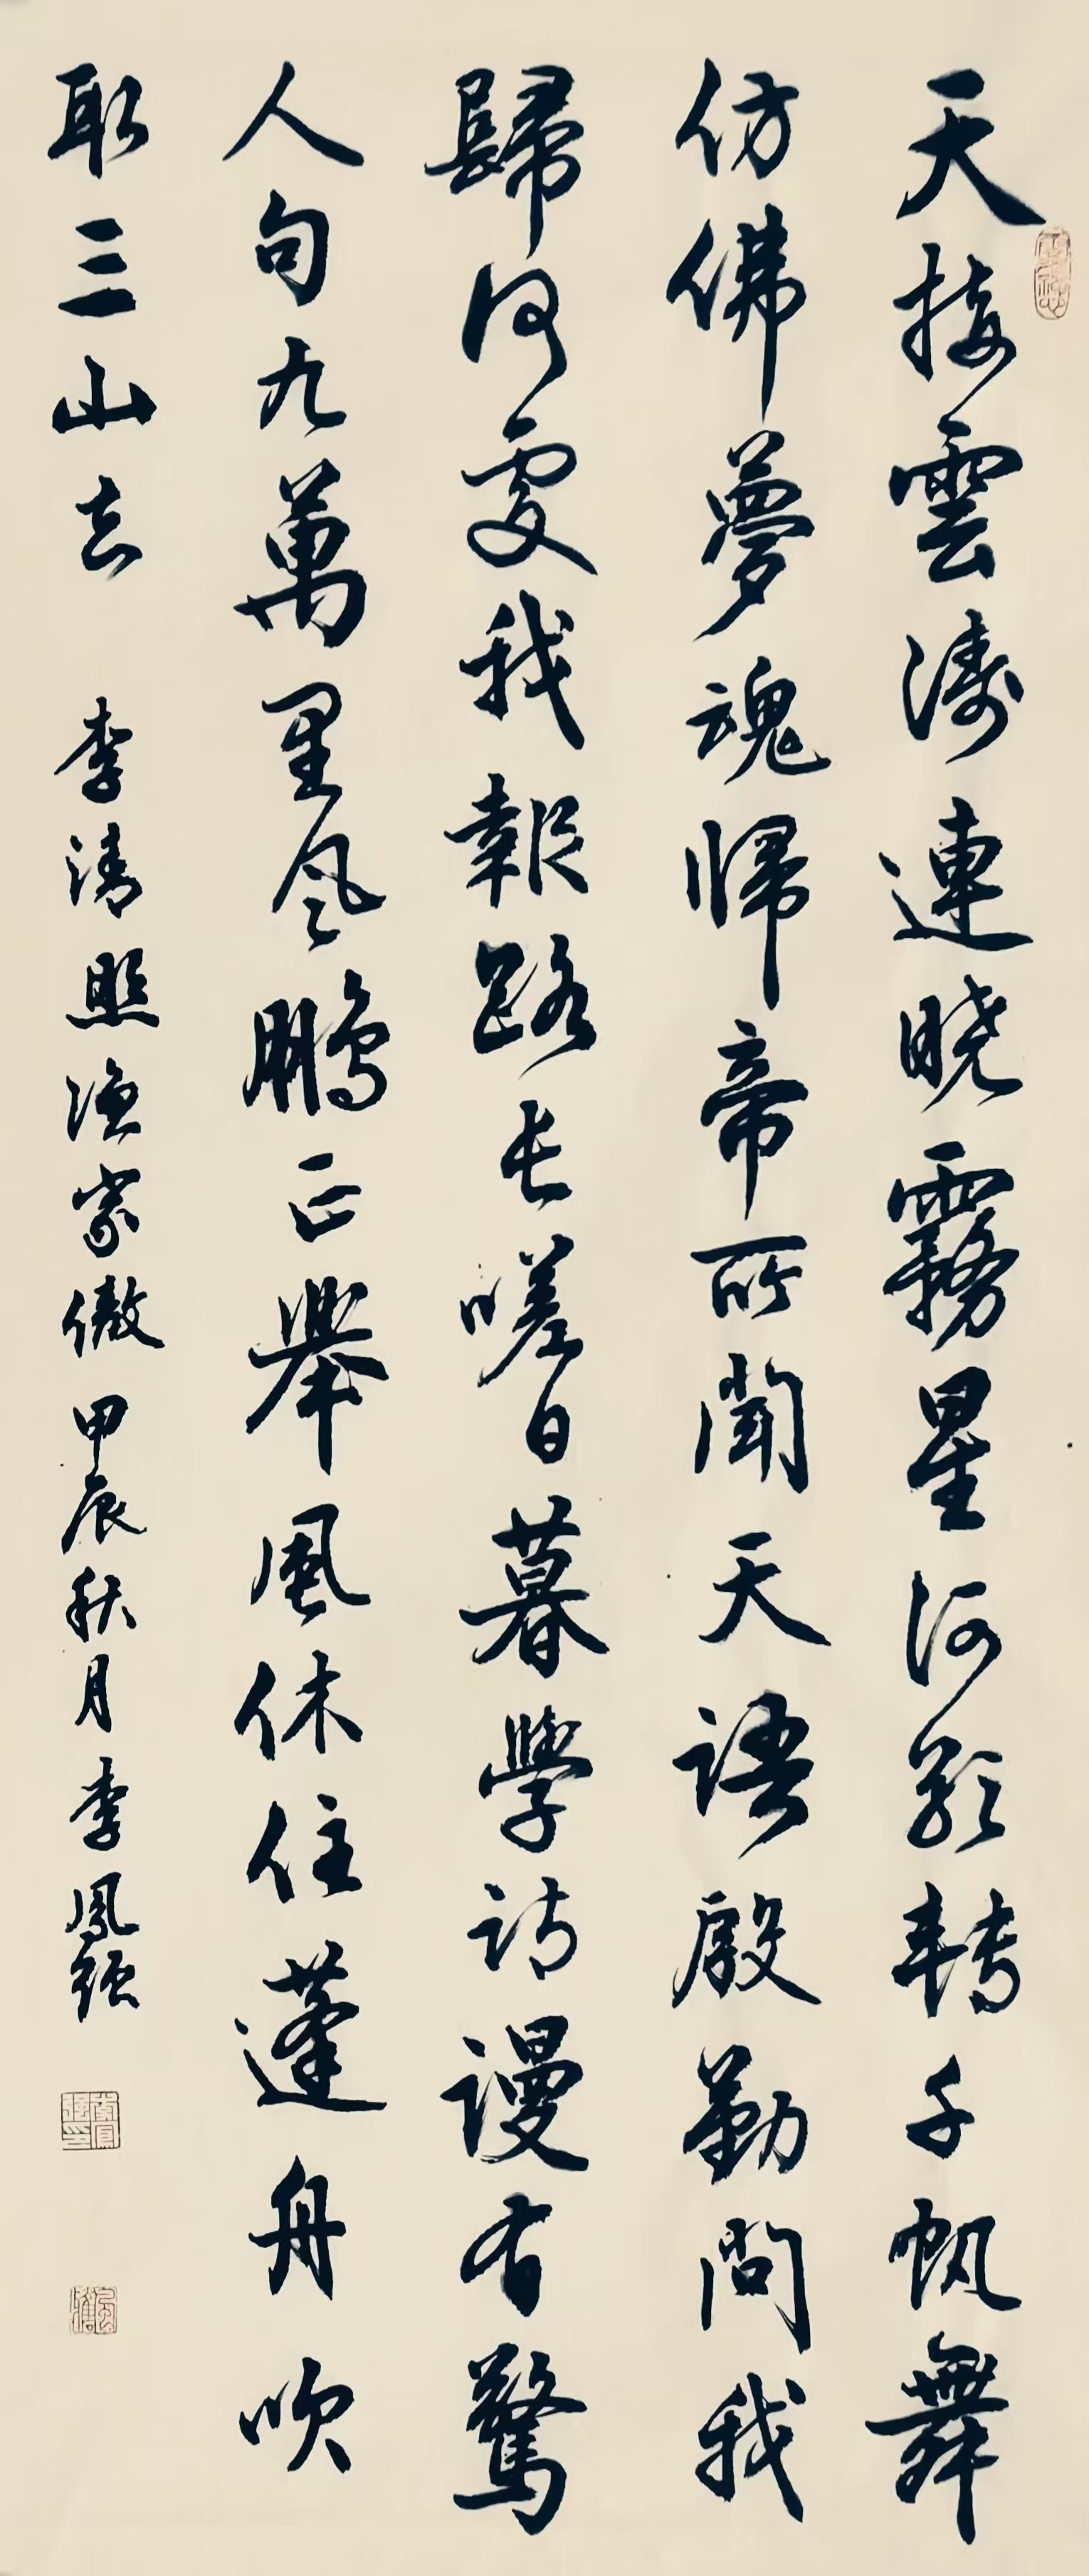 天接雲濤連曉霧星河欲轉千帆舞
仿佛夢魂帰帝所聞天語殷勤問我
歸何處我報路長嗟日暮學詩謾有驚
人句九萬里風鵬正舉風休住蓬舟吹
取三山去 李清照漁家傲 甲辰秋月李鳳強